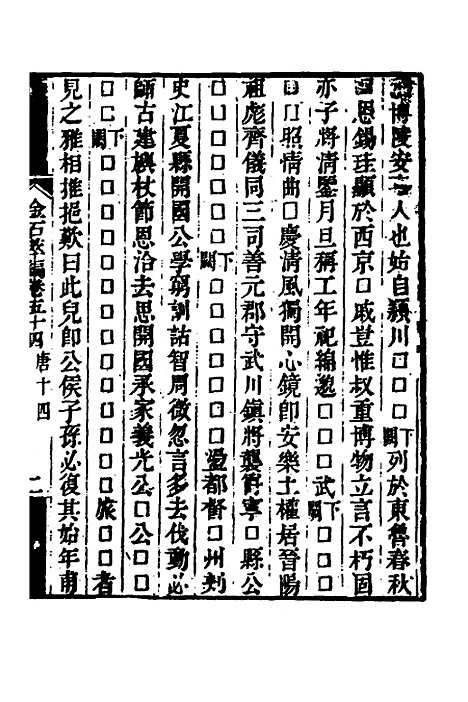 博陵安平人也始自潁川□□□下闕列於東魯春秋
□思錫珪顯於西京□戚豈惟叔重博物立言不朽固
亦子將清鑒月旦稱工年祀綿邈□□□武下闕□□□
□□照情曲□慶清風獨開心鏡卽安樂土權居晉陽
祖彪齊儀同三司善元郡守武川鎮將襲爵寧□縣公
□□□□□□□下闕□□□□□□□□都督□州刺
史江夏縣開國公學窮訓詁智周微忽言多去伐動必
師古建旟杖節思洽去思開國承家義光公□公□□
□□下闕□□□□□□□□□□□□□□旅□□者
見之雅相推挹歎曰此兒卽公侯子孫必復其始年甫
金石萃編卷五十四 唐十四 二